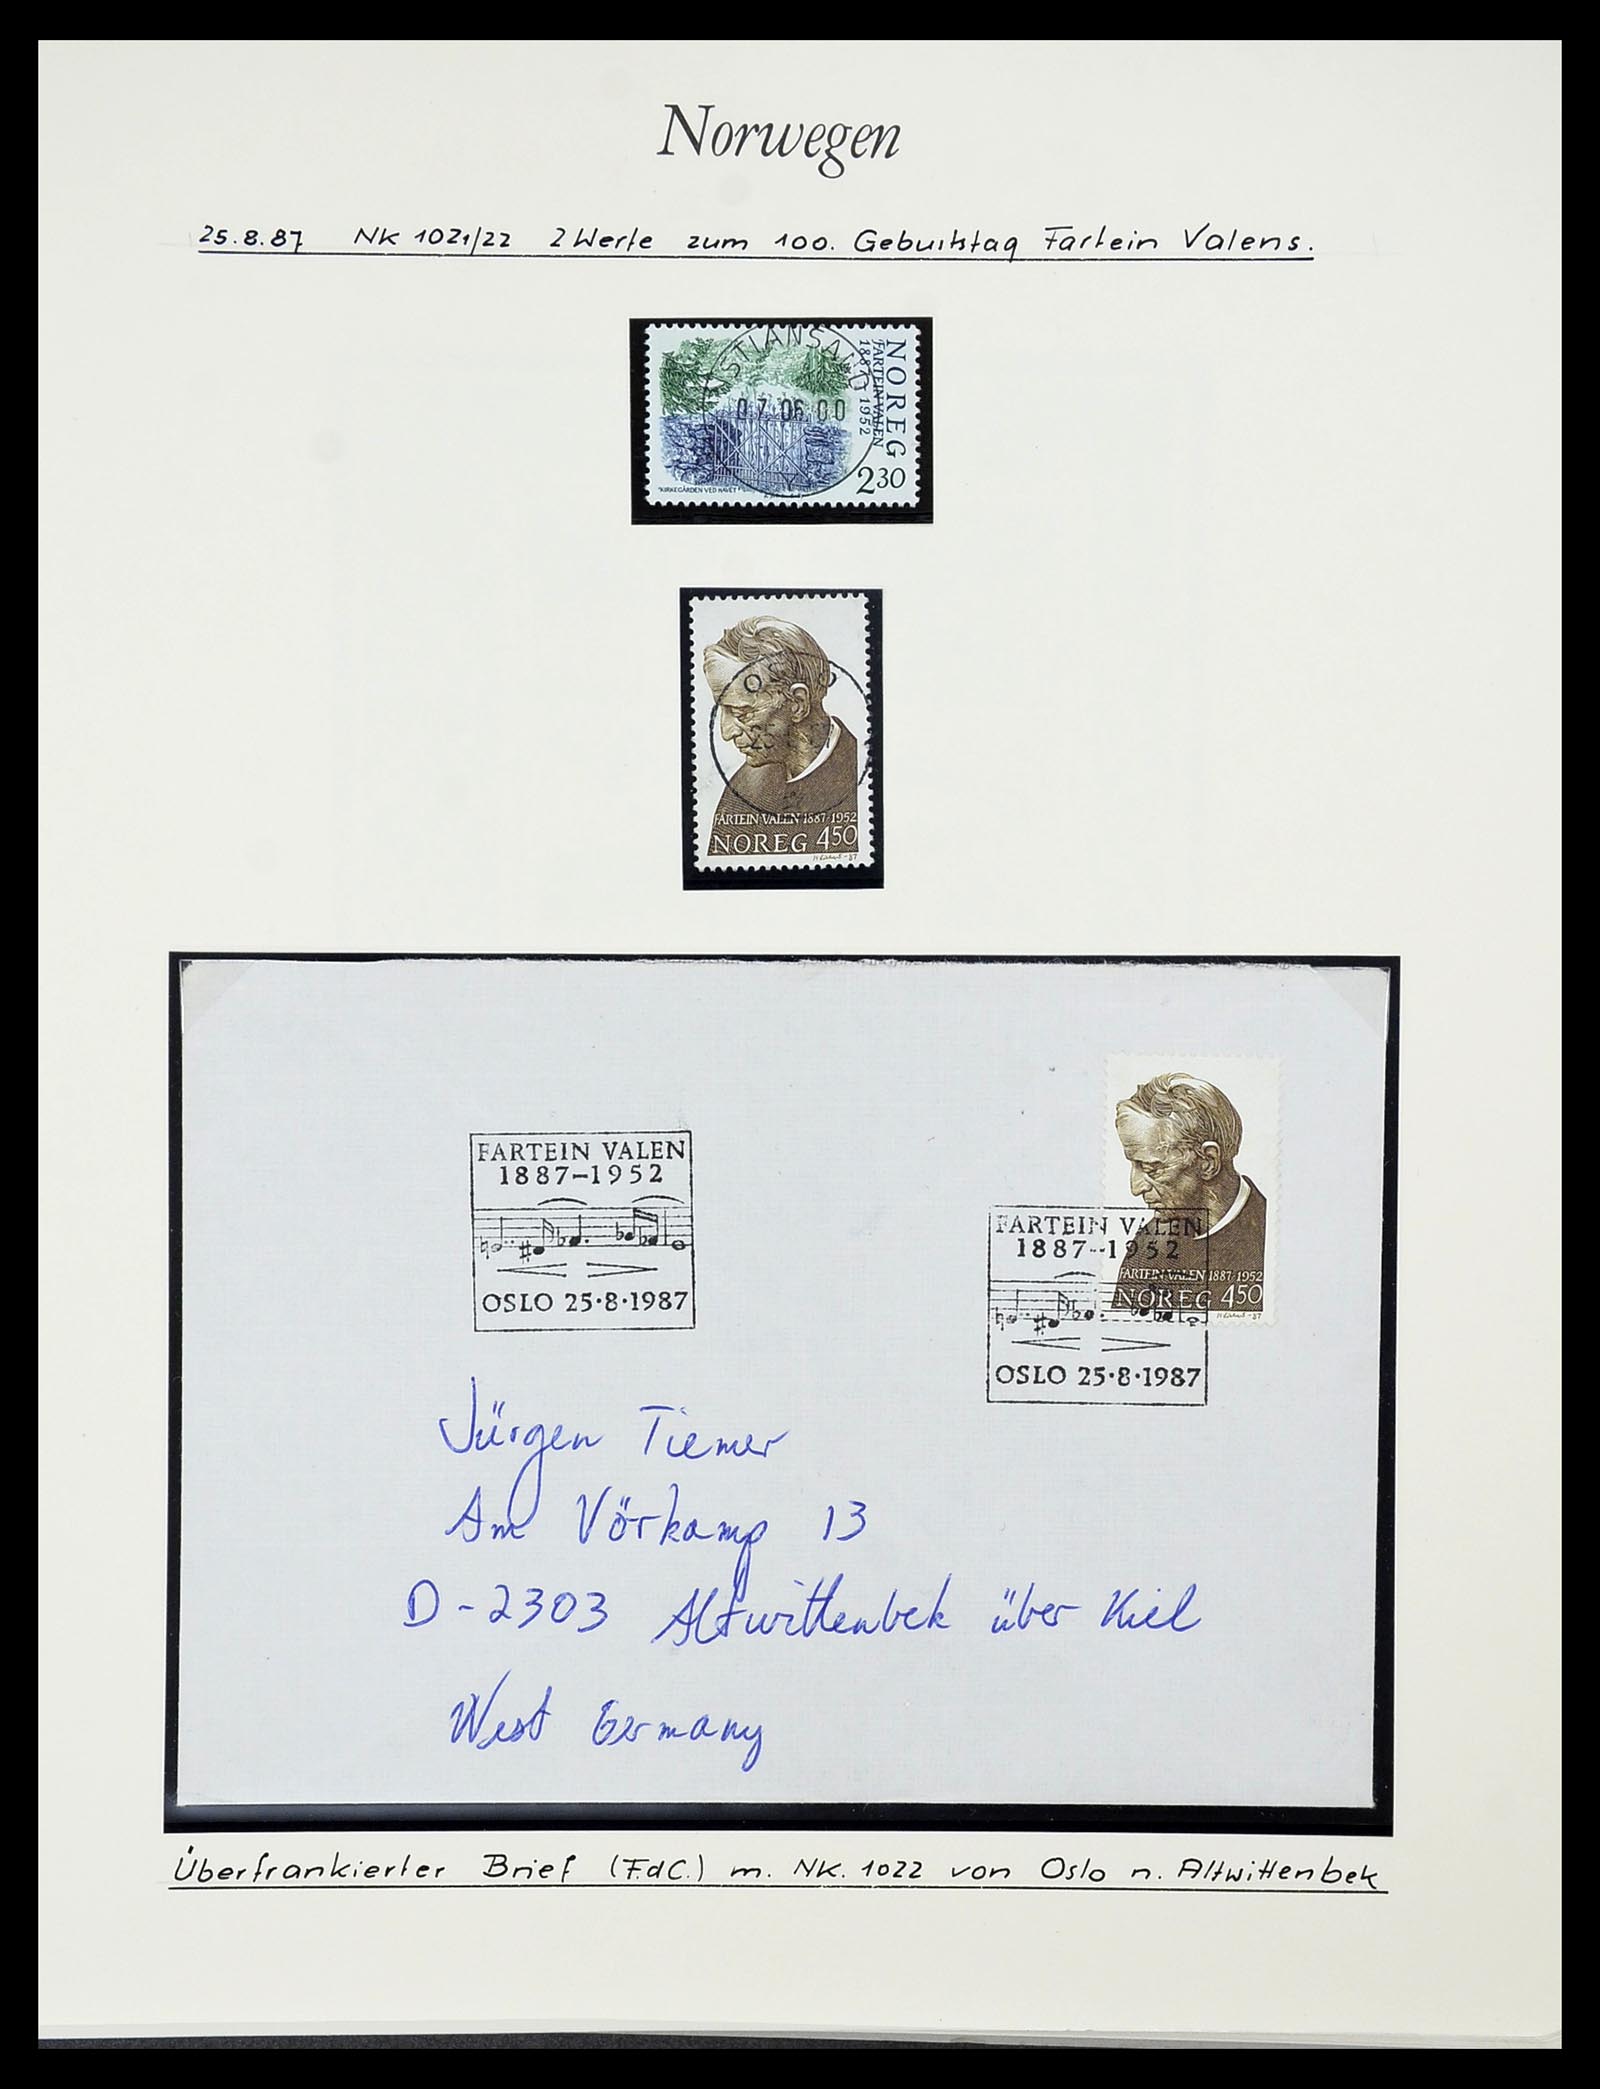 Norwegen
25.8.87 NK 1021/22 2 Werte zum 100. Geburtstag Fartein Valens.
STIANSAND
07 06 00
NOREG
FARTEIN VALEN
1887 1952
2 30
"KIRKEGÅRDEN VED HAVET"
FARTEIN VALEN 1887-1952
NOREG 450
FARTEIN VALEN
1887-1952
OSLO 25·8·1987
FARTEIN VALEN 1887-1952
NOREG 450
FARTEIN VALEN
1887-1952
OSLO 25·8·1987
Jürgen Tiemer
Am Vörkamp 13
D-2303 Altwittenbek über Kiel
West Germany
Überfrankierter Brief (F.d.C.) m. NK. 1022 von Oslo n. Altwittenbek